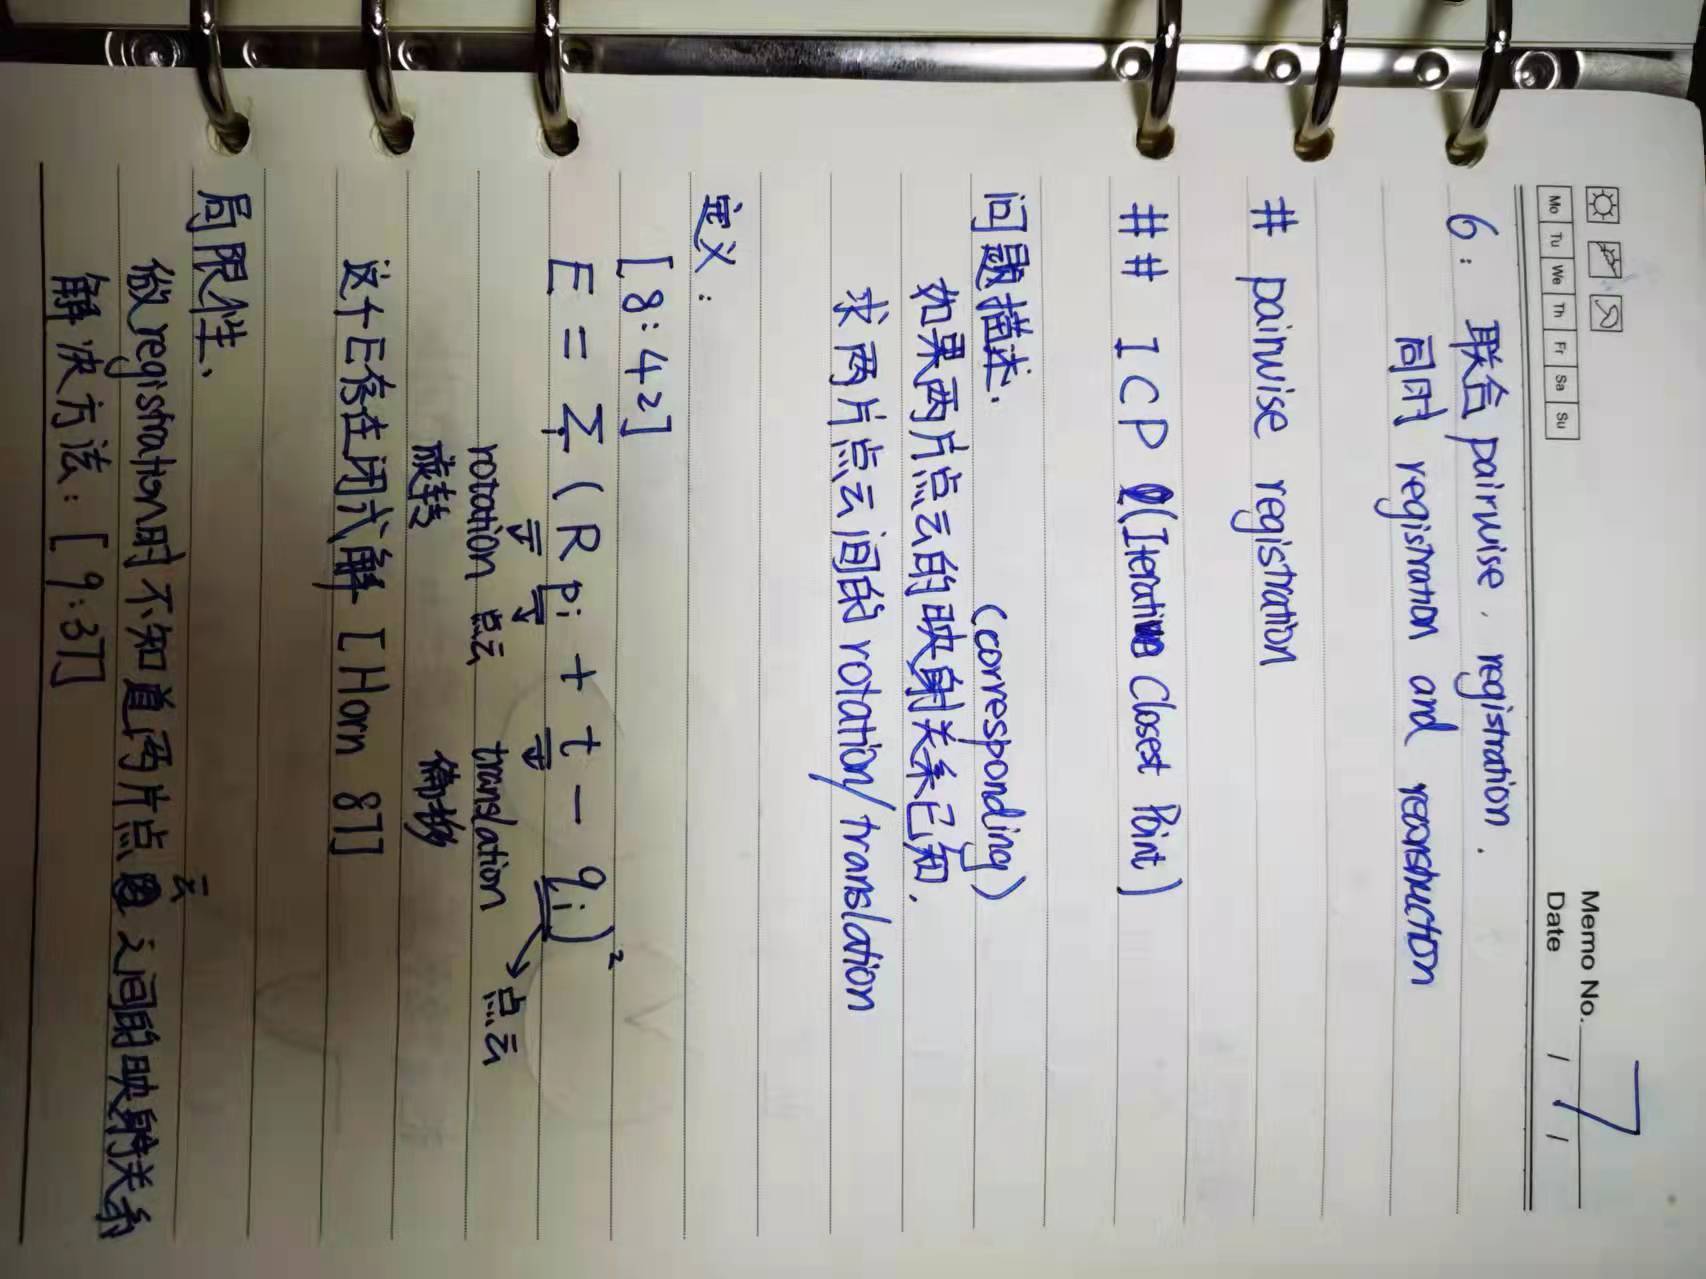 Memo No. 7
Mo Tu We Th Fr Sa Su
Date / /
6: 联合 pairwise registration.
同时 registration and reconstruction
# pairwise registration
## ICP (Iterative Closest Point)
问题描述.
(corresponding)
如果两片点云的映射关系已知.
求两片点云间的rotation/translation
定义:
[8:42]
E = Σi (R pi + t - qi)²
rotation 点云 translation 点云
旋转 偏移
这个E存在闭式解 [Horn 87]
局限性、
做registration时不知道两片点云之间的映射关系
解决方法: [9:37]